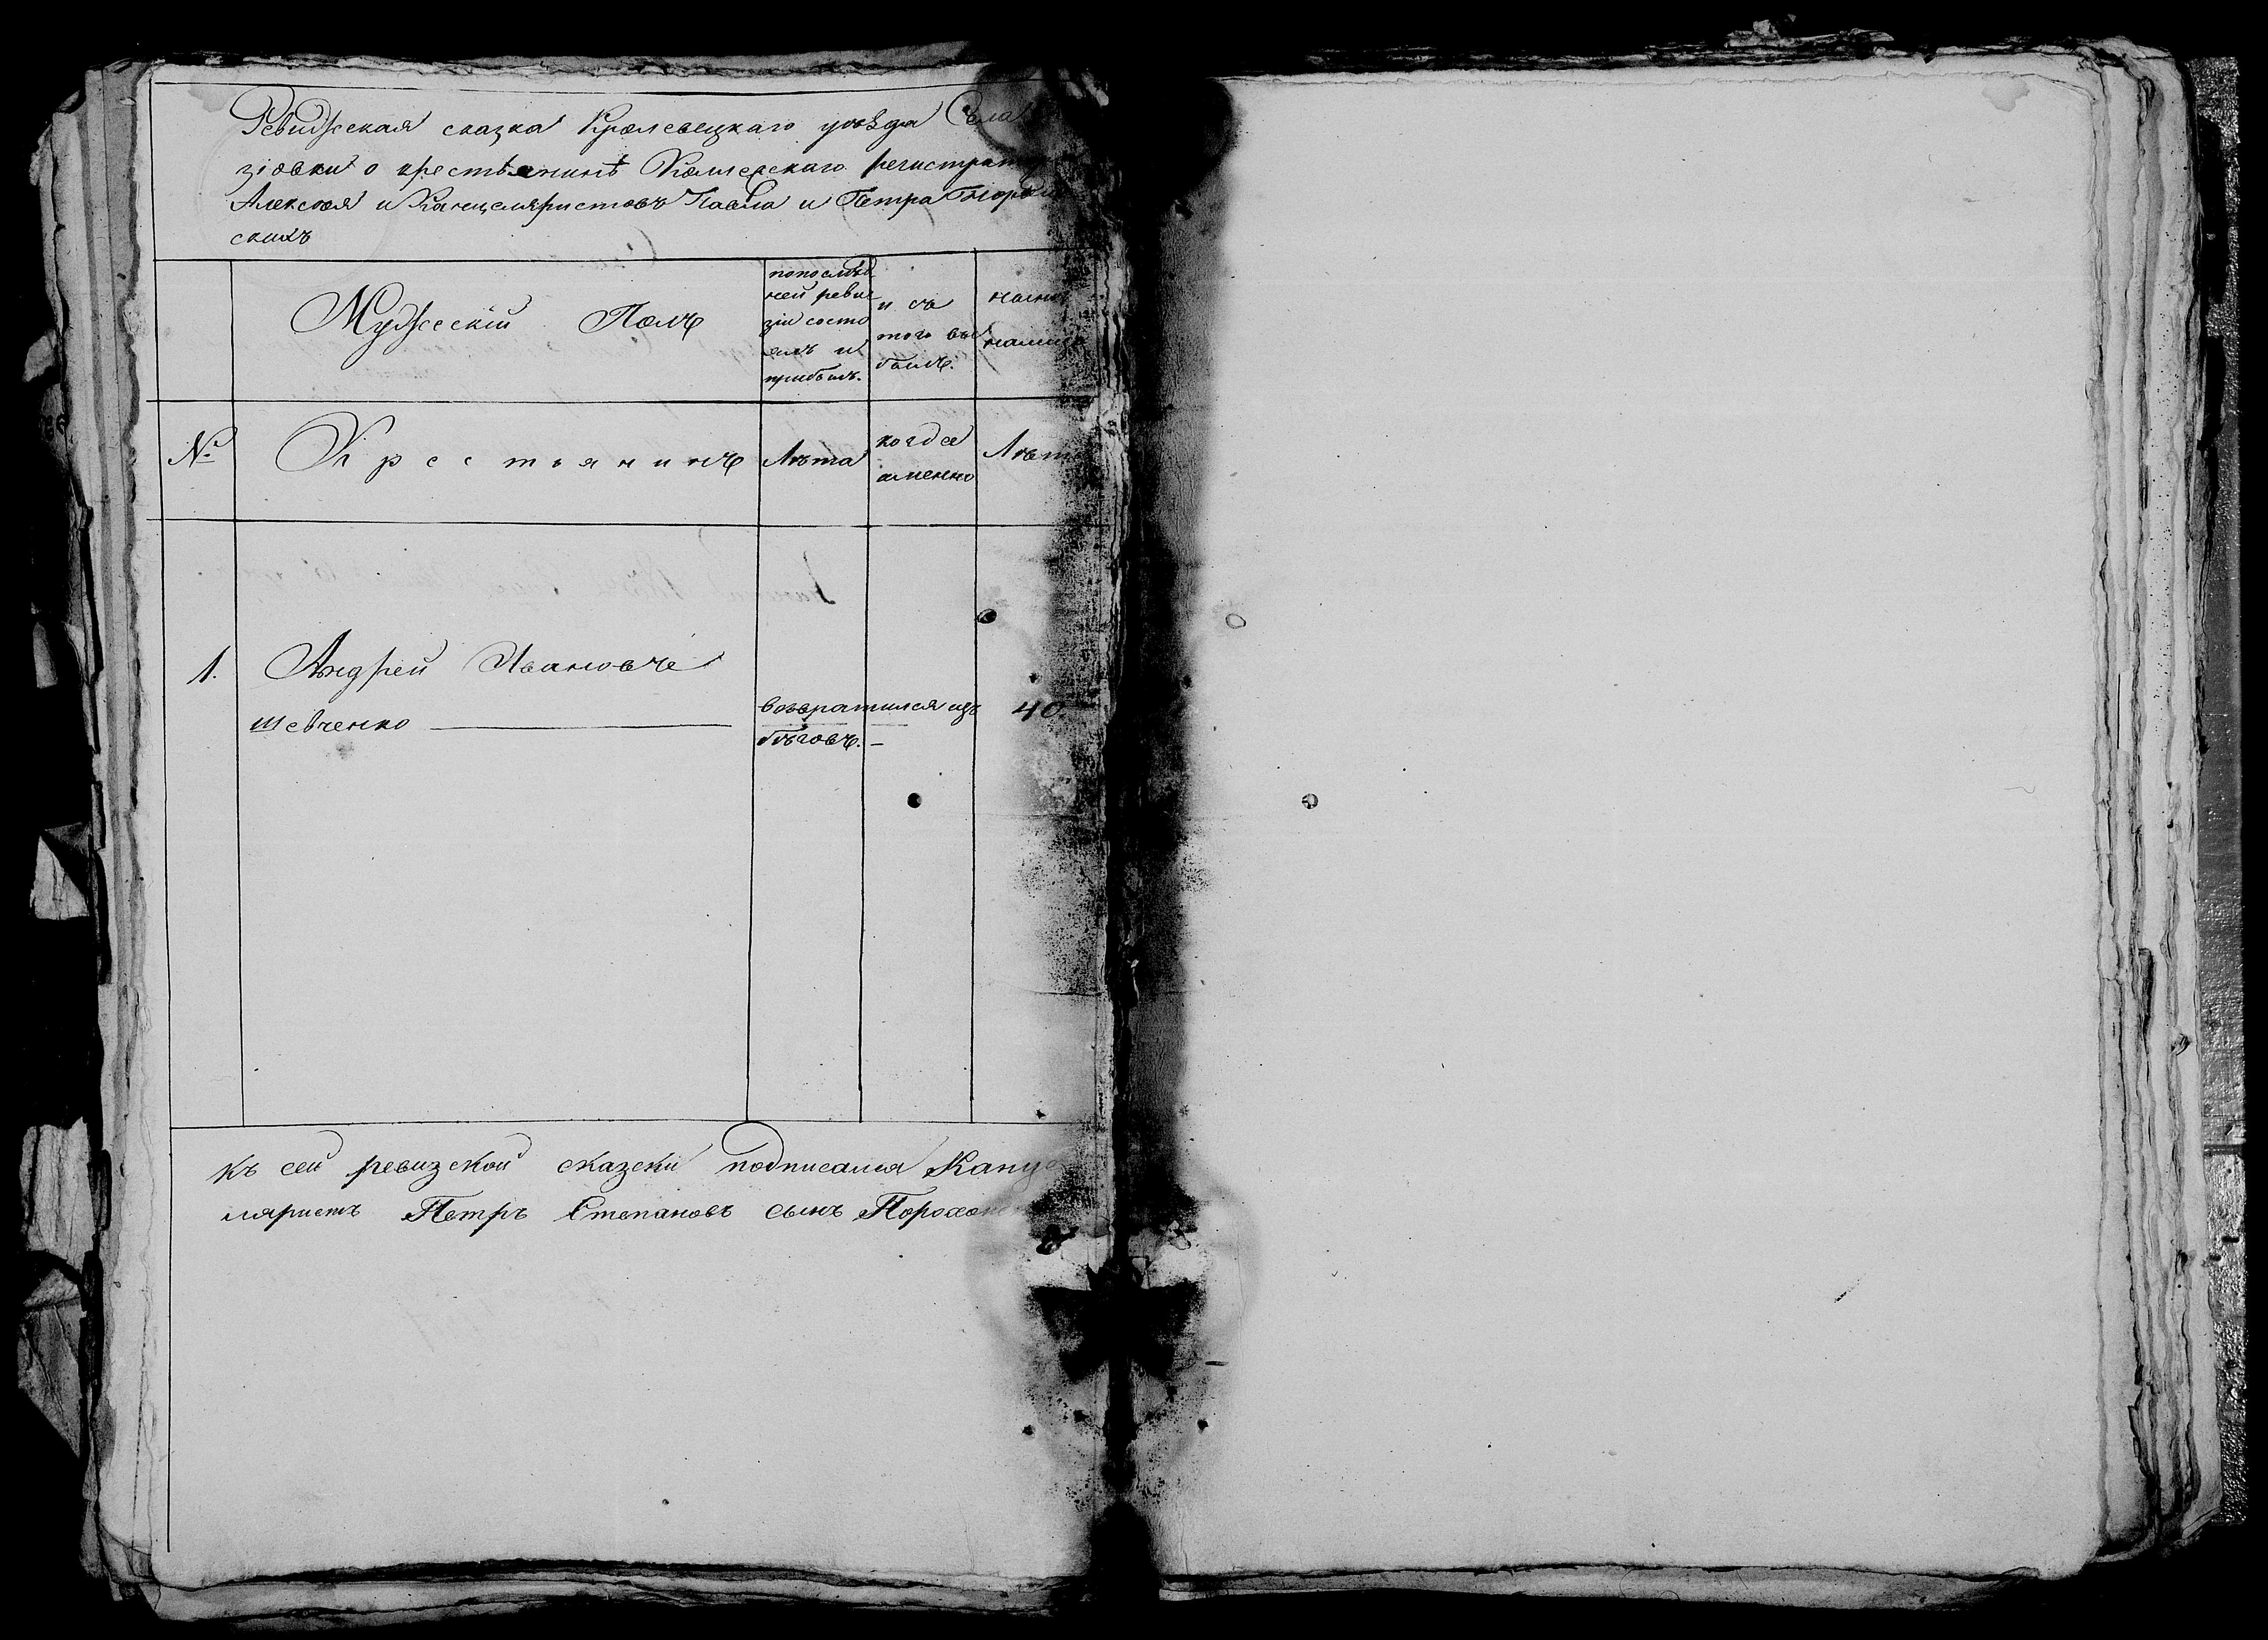 Ревизская сказка Кролевецкаго уѣзда Села
зіовки о крестьянинѣ Колежскаго регистрато
Алексѣя и Канцеляристовъ Павла и Петра
скихъ
Мужескій Полъ
попослѣд
ней реви
зіи состо
ялъ и
прибылъ.
и съ
того вы
былъ.
ныне
налицо
№
Крестьянинъ
Лѣта
когда
именно
Лѣта
1.
Андрей Ивановъ
Шевченко
возвратился изъ
бѣговъ. —
40.
Къ сей ревизской сказски подписался Канце
ляристъ Петръ Степановъ сынъ Порохонс